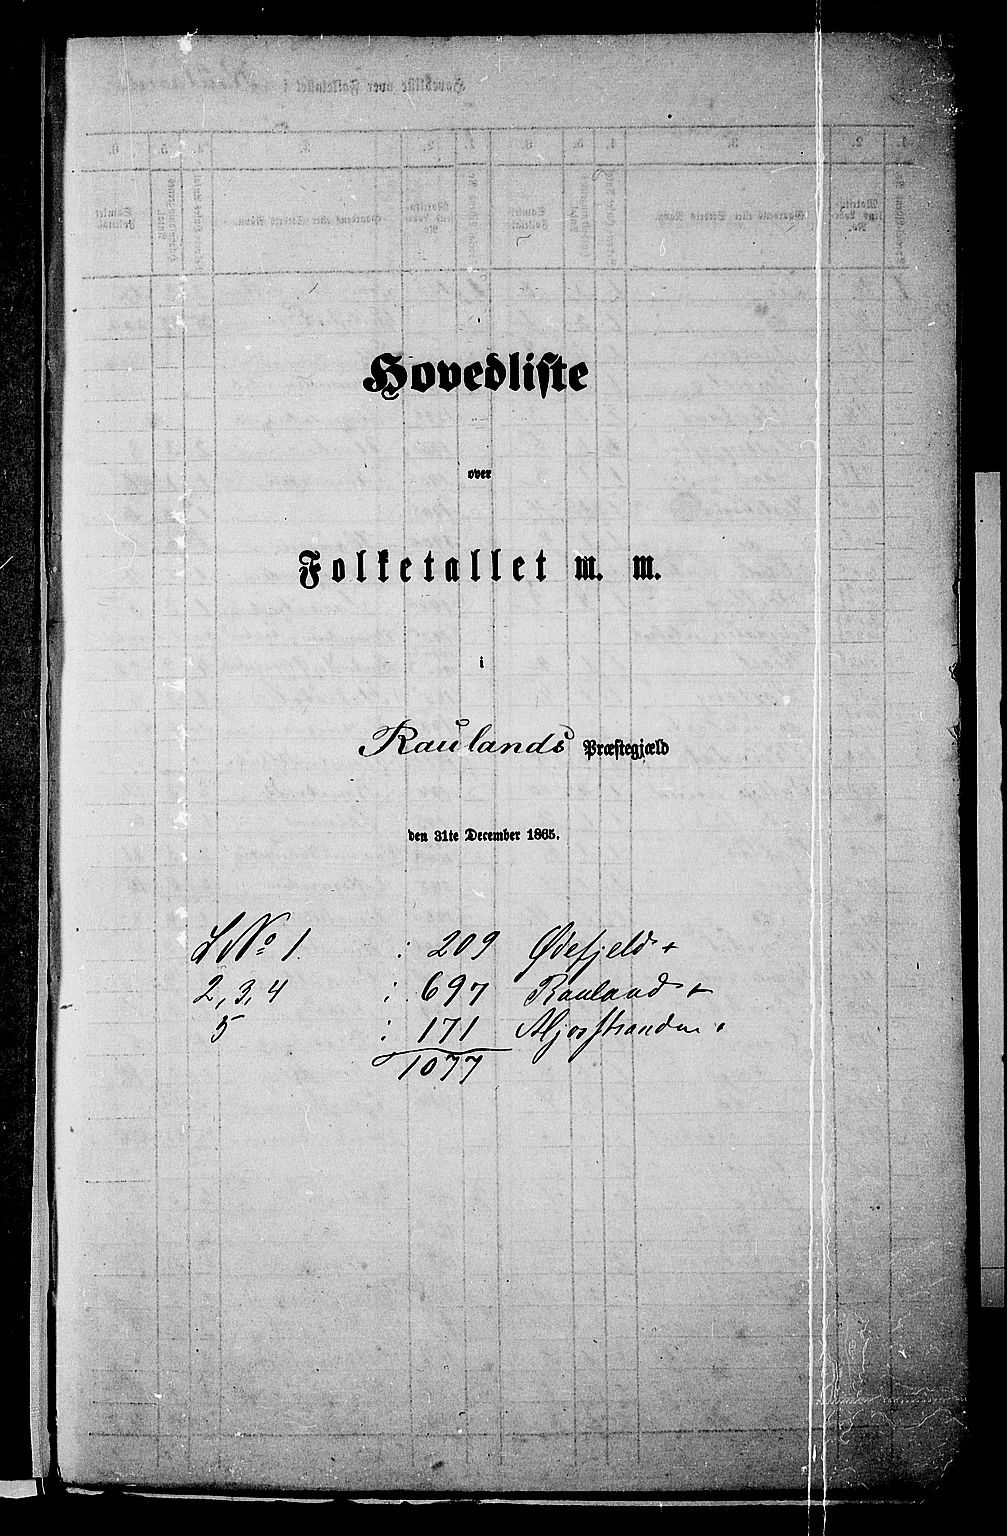 Hovedliste
over
Folketallet m. m.
i
Raulands Præstegjæld
den 31te December 1865.
L No 1. : 209 Ødefjeld +
2, 3, 4 : 697 Rauland +
5 : 171 Mjosstranden
1077